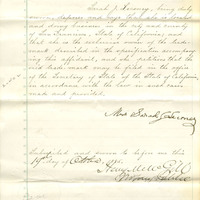 Sarah J. Kersney, being duly
sworn deposes and says that she is
doing business in the city and county
of San Francisco, State of California; and
that she is the exclusive owner of the trade-
mark described in the specification accompany-
ing this affidavit, and she petitions that the
said trade-mark may be filed in the office
of the Secretary of State of the State of California,
in accordance with the law in such case
made and provided.
Mrs Sarah J. Kersney
Subscribed and sworn to before me this
19th day of October
Notary Public